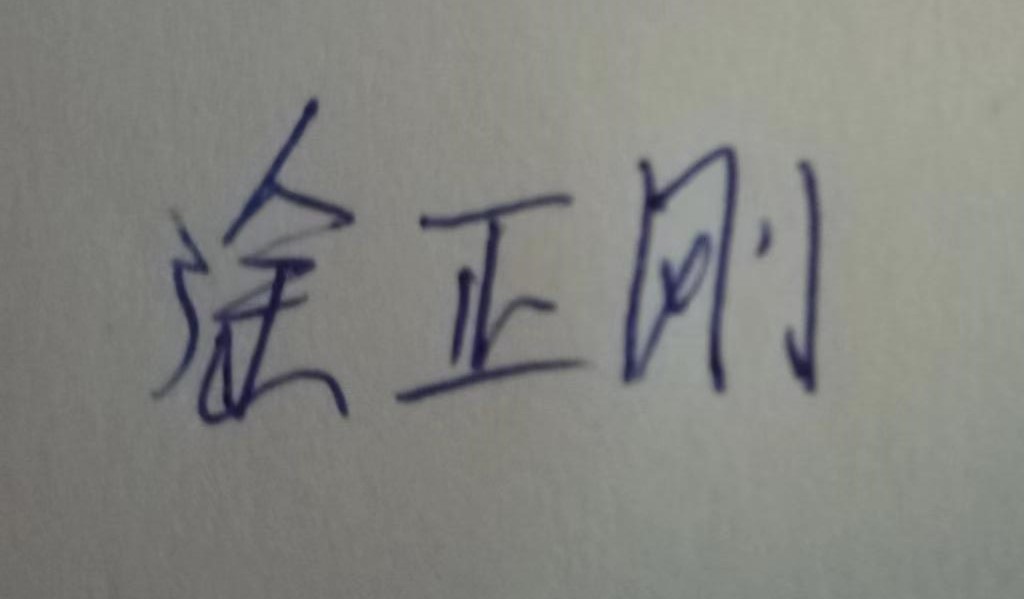 涂正刚